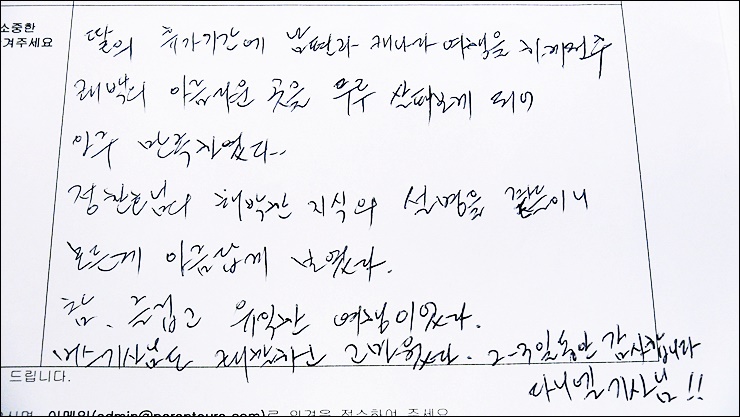 소중한
겨주세요
딸의 휴가기간에 남편과 캐나다 여행을 하게되어
아름다운 곳을 두루 살펴보게 되어
아주 만족하였다.
해박한 지식의 설명을
모든게 아름답게 보였다.
참, 즐겁고 유익한 여행이었다.
버스기사님도 친절하고 고마웠다. 2-3일동안 감사합니다
다니엘 기사님!!
드립니다.
이메일(admin@parantours.com)로 의견을 접수하여 주세요